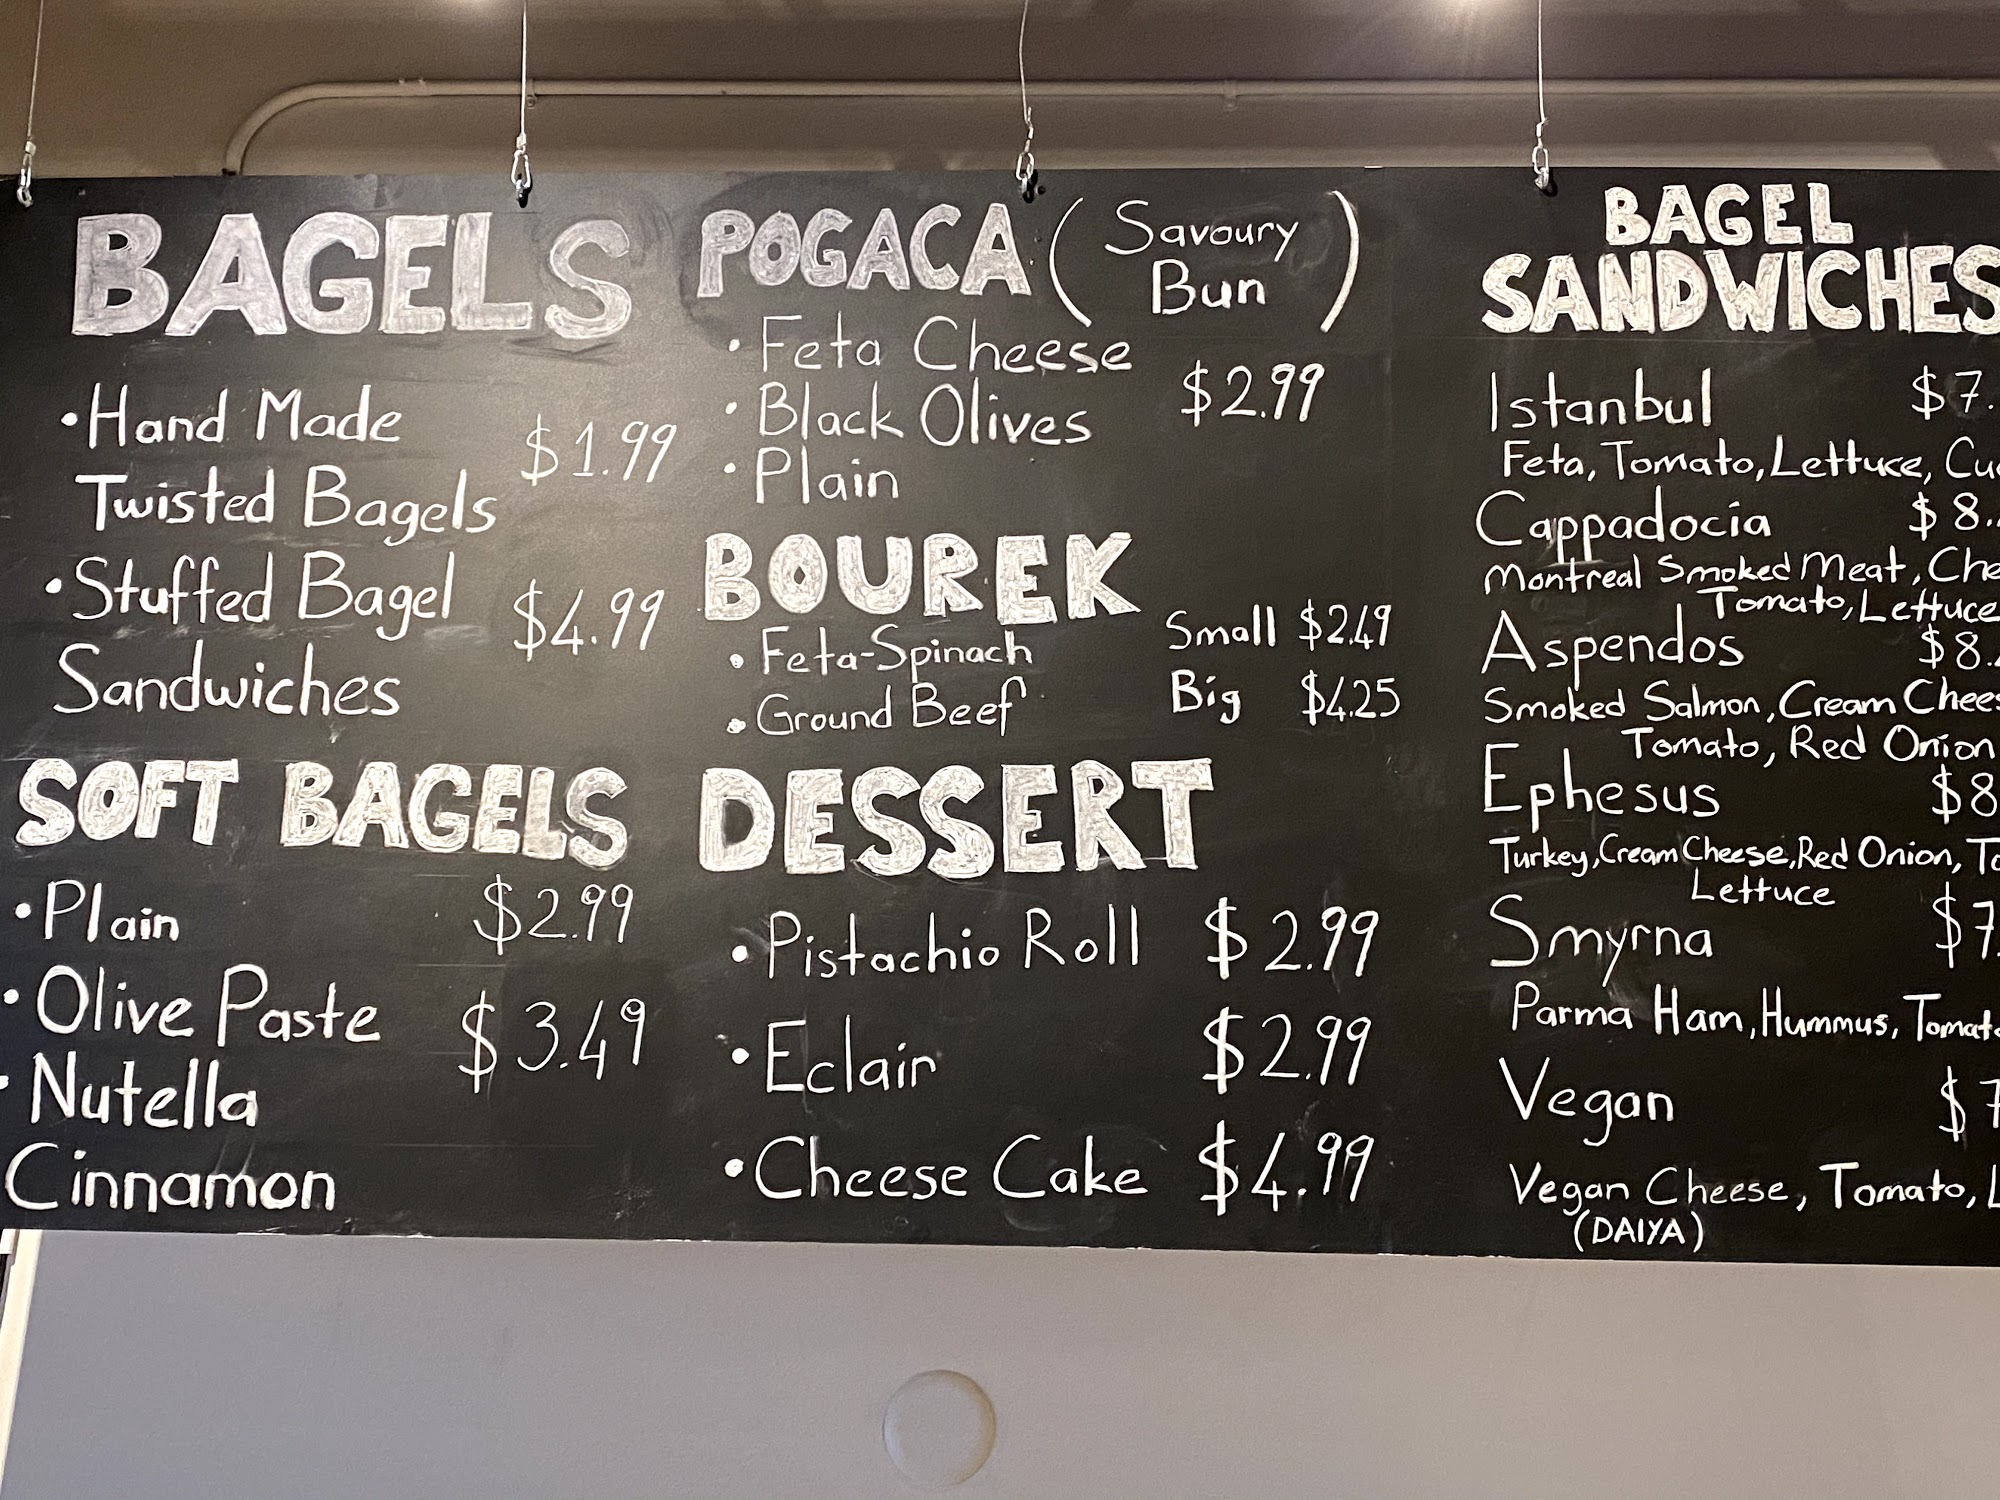 BAGELS
• Hand Made
Twisted Bagels $1.99
• Stuffed Bagel
Sandwiches $4.99
SOFT BAGELS
• Plain $2.99
• Olive Paste $3.49
• Nutella
Cinnamon
POGACA (Savoury
Bun)
• Feta Cheese
• Black Olives $2.99
• Plain
BOUREK
• Feta-Spinach Small $2.49
• Ground Beef Big $4.25
DESSERT
• Pistachio Roll $2.99
• Eclair $2.99
• Cheese Cake $4.99
BAGEL
SANDWICHES
Istanbul $7.
Feta, Tomato, Lettuce,
Cappadocia $8.
Montreal Smoked Meat,
Tomato, Lettuce
Aspendos $8.
Smoked Salmon, Cream Chees
Tomato, Red Onion
Ephesus $8
Turkey, Cream Cheese, Red Onion,
Lettuce
Smyrna $7.
Parma Ham, Hummus, Tomato
Vegan $7
Vegan Cheese, Tomato,
(DAIYA)